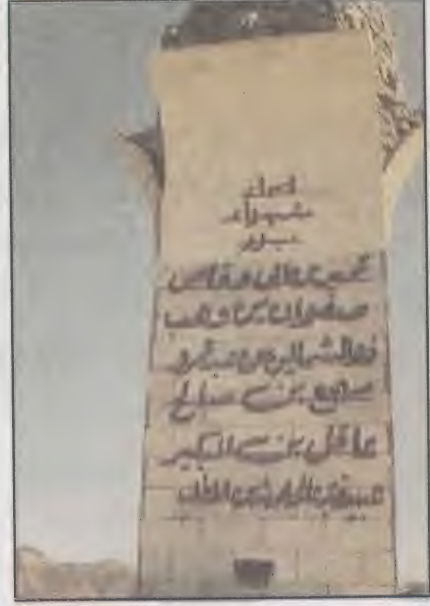 اسماء
شهداء
بدر
عمير بن ابى وقاص
صفوان بن وهب
ذو الشمالين بن عبد عمرو
مهجع بن صالح
عاقل بن البكير
عبيدة بن الحارث بن المطلب